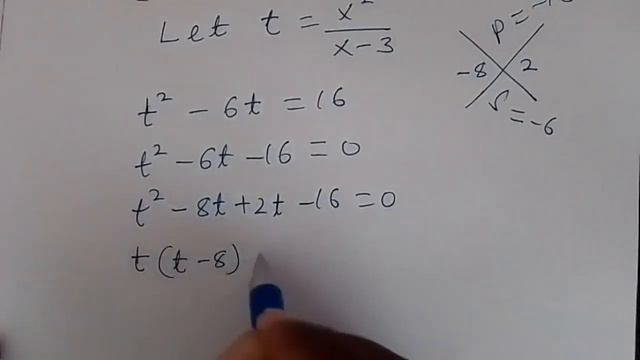 Let t = x²/x-3
p = -16
-8 2
s = -6
t² - 6t = 16
t² - 6t - 16 = 0
t² - 8t + 2t - 16 = 0
t(t-8)